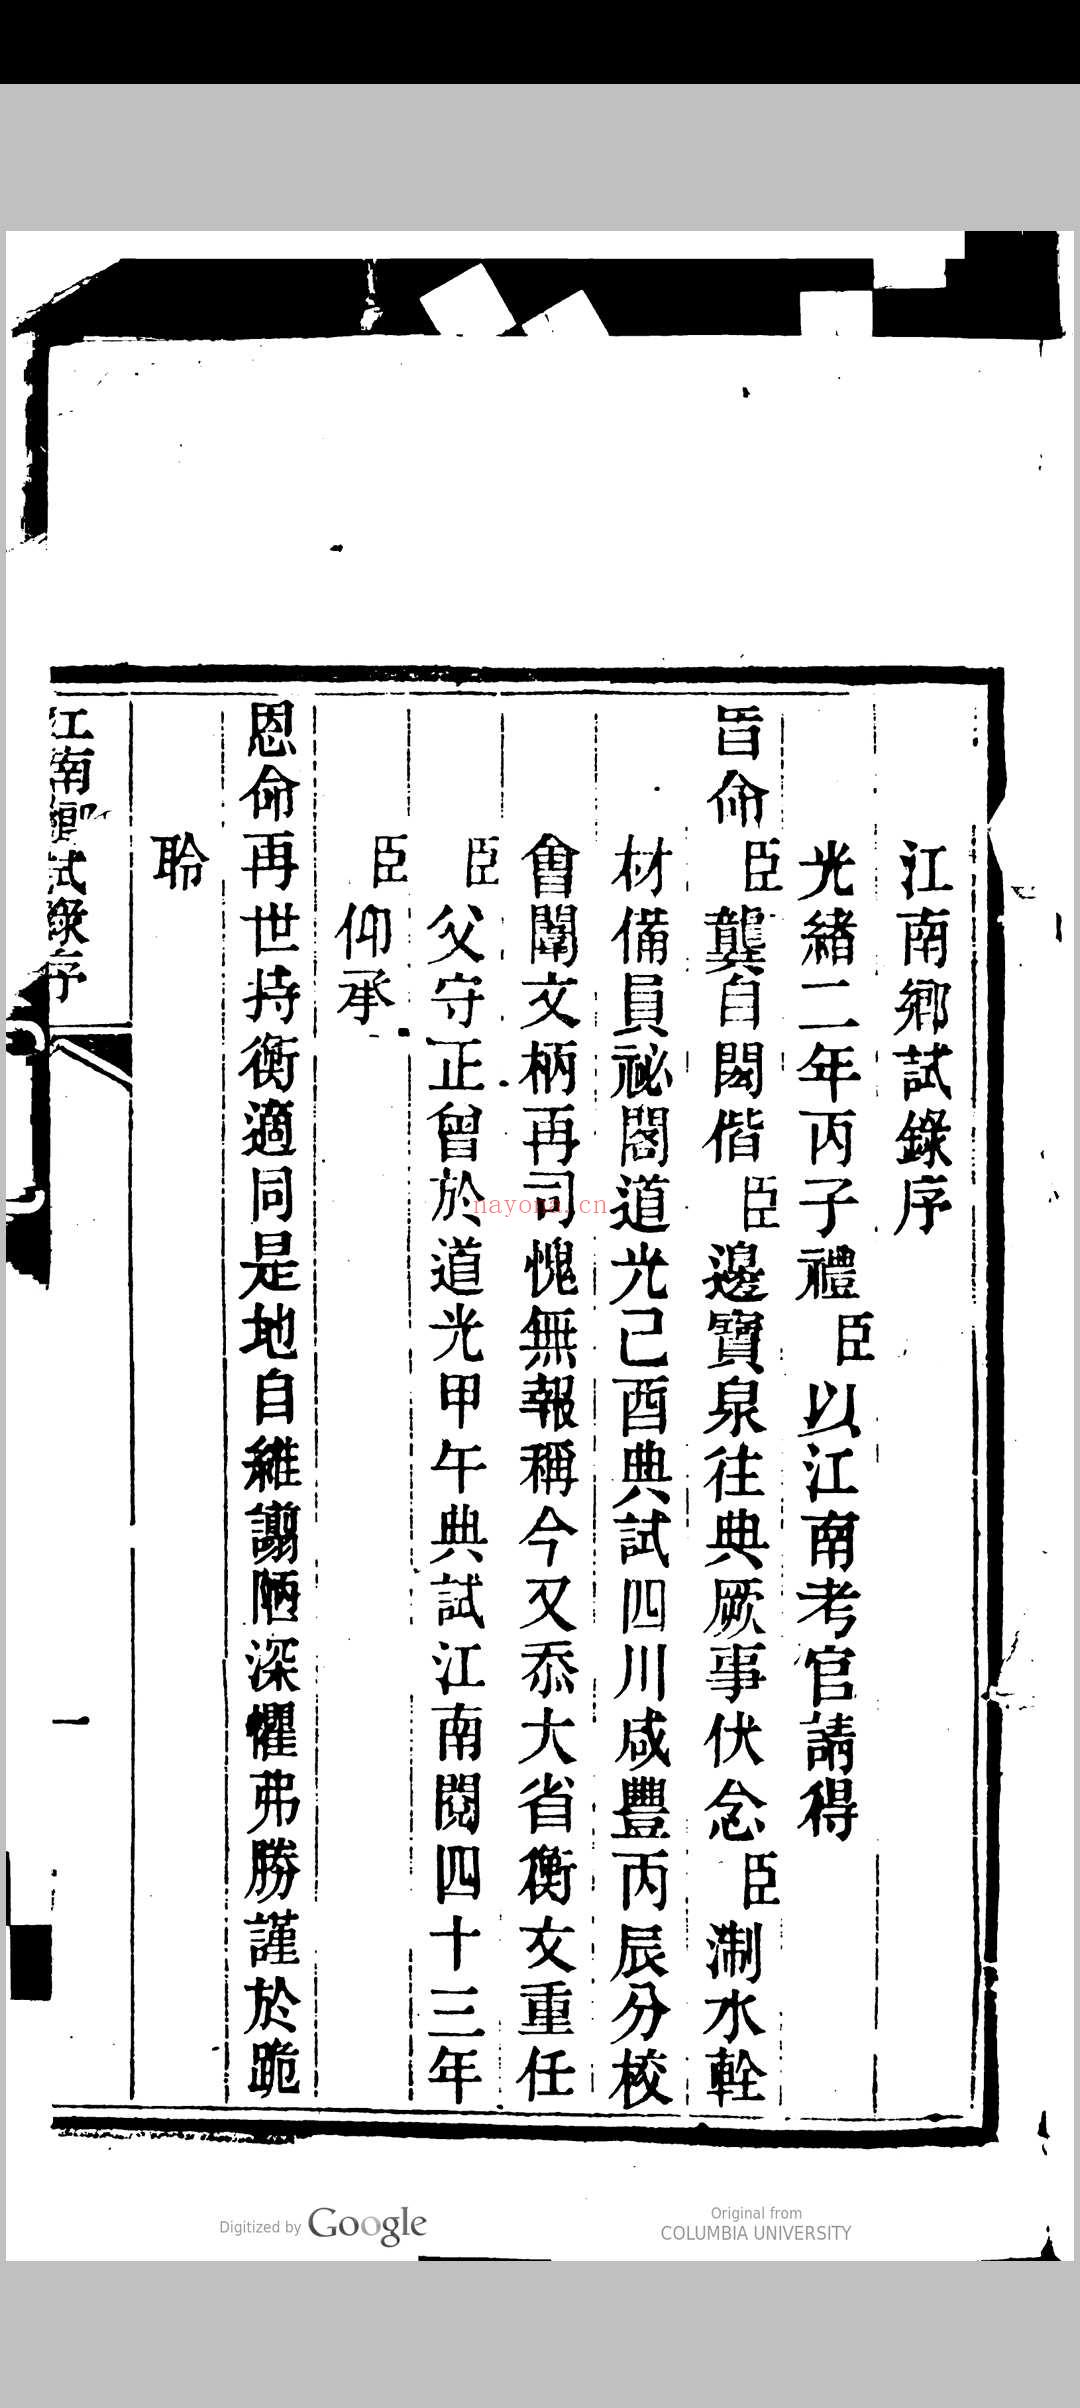 江南鄉試錄序
光緒二年丙子禮臣以江南考官請得
旨命臣龔自閎偕臣邊寶泉往典厥事伏念臣淛水輇
材備員祕閣道光己酉典試四川咸豐丙辰分校
會闈文柄再司愧無報稱今又忝大省衡文重任
臣父守正曾於道光甲午典試江南閱四十三年
臣仰承
恩命再世持衡適同是地自維譾陋深懼弗勝謹於跪
聆
江南鄉試錄序
一
nayona.cn
Digitized by Google
Original from
COLUMBIA UNIVERSITY